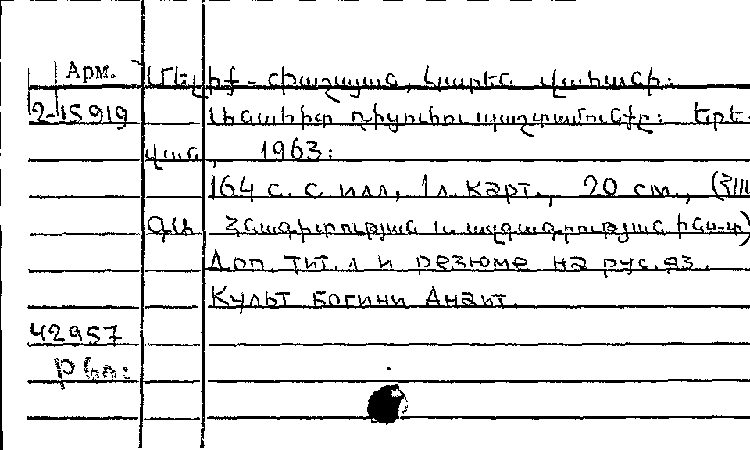 Арм. Մելիք-Փաշայան, Կարեն Վահանի:
2-15919 Անահիտ դիցուհու պաշտամունքը: Երե-
վան, 1963:
164 с. с илл, 1 л. карт., 20 см.,
ԳԱ Հնագիտության և ազգագրության ինս-տ)
Доп. тит. л и резюме на рус. яз.
Культ богини Анаит.
42957